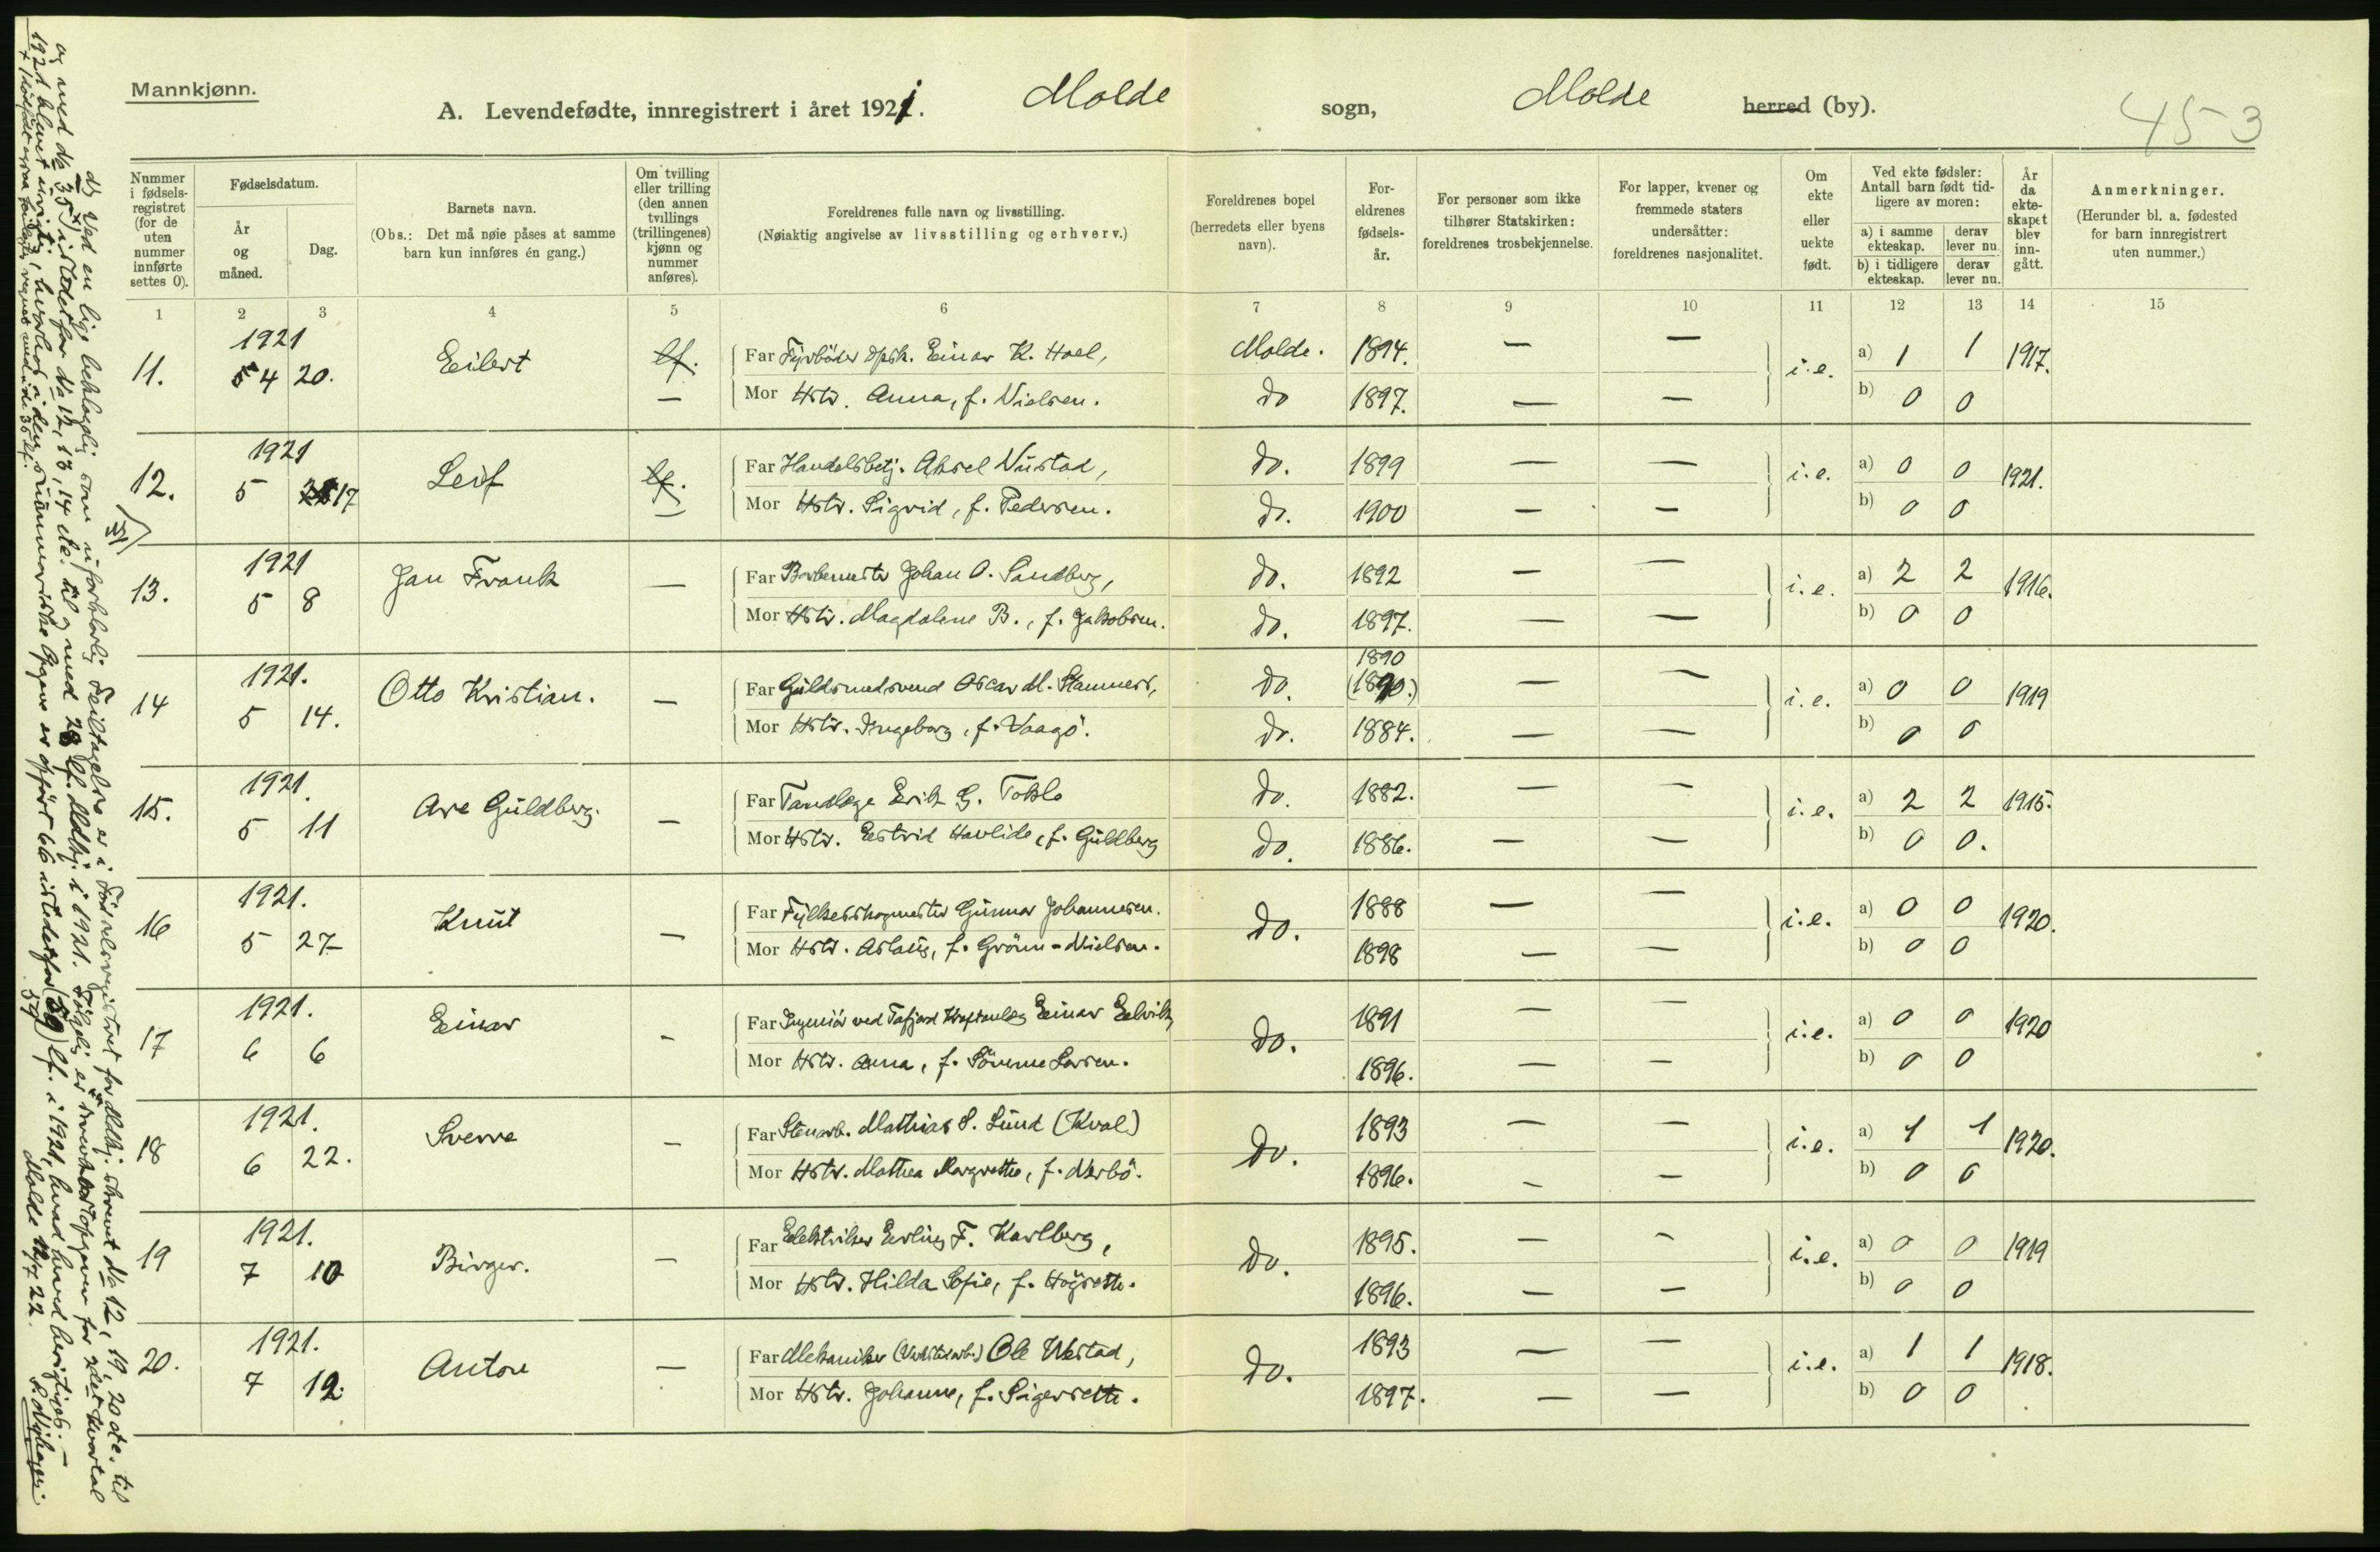 Mannkjønn.
A. Levendefødte, innregistrert i året 1921. Molde sogn, Molde herred (by).
453
Nummer i fødsels-registret (for de uten nummer innførte settes 0).
Fødselsdatum.
År og måned.
Dag.
Barnets navn.
(Obs.: Det må nøie påses at samme barn kun innføres én gang.)
Om tvilling eller trilling (den annen tvillings (trillingenes) kjønn og nummer anføres).
Foreldrenes fulle navn og livsstilling.
(Nøiaktig angivelse av livsstilling og erhverv.)
Foreldrenes bopel (herredets eller byens navn).
For-eldrenes fødsels-år.
For personer som ikke tilhører Statskirken: foreldrenes trosbekjennelse.
For lapper, kvener og fremmede staters undersåtter: foreldrenes nasjonalitet.
Om ekte eller uekte født.
Ved ekte fødsler: Antall barn født tid-ligere av moren:
a) i samme ekteskap. derav lever nu.
b) i tidligere ekteskap. derav lever nu.
År da ekte-skapet blev inn-gått.
Anmerkninger.
(Herunder bl. a. fødested for barn innregistrert uten nummer.)
1 2 3 4 5 6 7 8 9 10 11 12 13 14 15
11. 1921 4 20. Eilert lf. —
Far Fyrbøder Einar K. Hoel, Molde. 1894. — — i.e. a) 1 1 1917.
Mor Hstr. Anna, f. Nielsen. do 1897. — — b) 0 0
12. 1921 5 17 Leif lf. —
Far Handelsbetj. Aksel Nustad, do. 1899 — — i.e. a) 0 0 1921.
Mor Hstr. Sigrid, f. Pedersen. do. 1900 — — b) 0 0
13. 1921 5 8 Jan Frank —
Far Johan O. Sandberg, do. 1892 — — i.e. a) 2 2 1916.
Mor Hstr. Magdalene B., f. Jakobsen. do. 1897. — — b) 0 0
14 1921. 5 14. Otto Kristian. —
Far Guldsmedsvend Oscar M. Stammers, do. 1890 (1890.) — — i.e. a) 0 0 1919
Mor Hstr. Ingeborg, f. Vaagö. do. 1884. — — b) 0 0
15. 1921. 5 11 Are Guldberg. —
Far Tandlæge Erik G. Toklo do. 1882. — — i.e. a) 2 2 1915.
Mor Hstr. Estrid Havlide, f. Guldberg do. 1886. — — b) 0 0.
16 1921. 5 27 Knut —
Far Fylkesskogmester Gunnar Johannesen. do. 1888 — — i.e. a) 0 0 1920.
Mor Hstr. Aslaug, f. Grönn-Nielsen. 1898 — — b) 0 0
17 1921. 6 6 Einar -
Far Ingeniör ved Tafjord Kraftanlæg Einar Eelvik, do. 1891 — — i.e. a) 0 0 1920
Mor Hstr. Anna, f. Sömme Larsen. 1896. — — b) 0 0
18 1921. 6 22. Sverre —
Far Stenarb. Mathias S. Lund (Kval) do. 1893 — — i.e. a) 1 1 1920.
Mor Hstr. Mathea Margrethe, f. Nerbö. 1896. — — b) 0 0
19 1921. 7 10 Birger. —
Far Elektriker Erling F. Karlberg, do. 1895. — — i.e. a) 0 0 1919
Mor Hstr. Hilda Sofie, f. Höysetts. 1896. — — b) 0 0
20. 1921. 7 12. Anton —
Far Mekaniker (Verkstedarb.) Ole Westad, do. 1893 — — i.e. a) 1 1 1918.
Mor Hstr. Johanne, f. Sigersette. 1897. — — b) 0 0
Ved en lige beklagelig som uforklarlig Feiltagelse er i Födselsregistret for Mdkj. skrevet No 12, 19, 20 etc. til
og med No 35 istedetfor No 12, 13, 14 etc. til og med 28 lf. Mdkj. i 1921.
Molde 12/7 22.